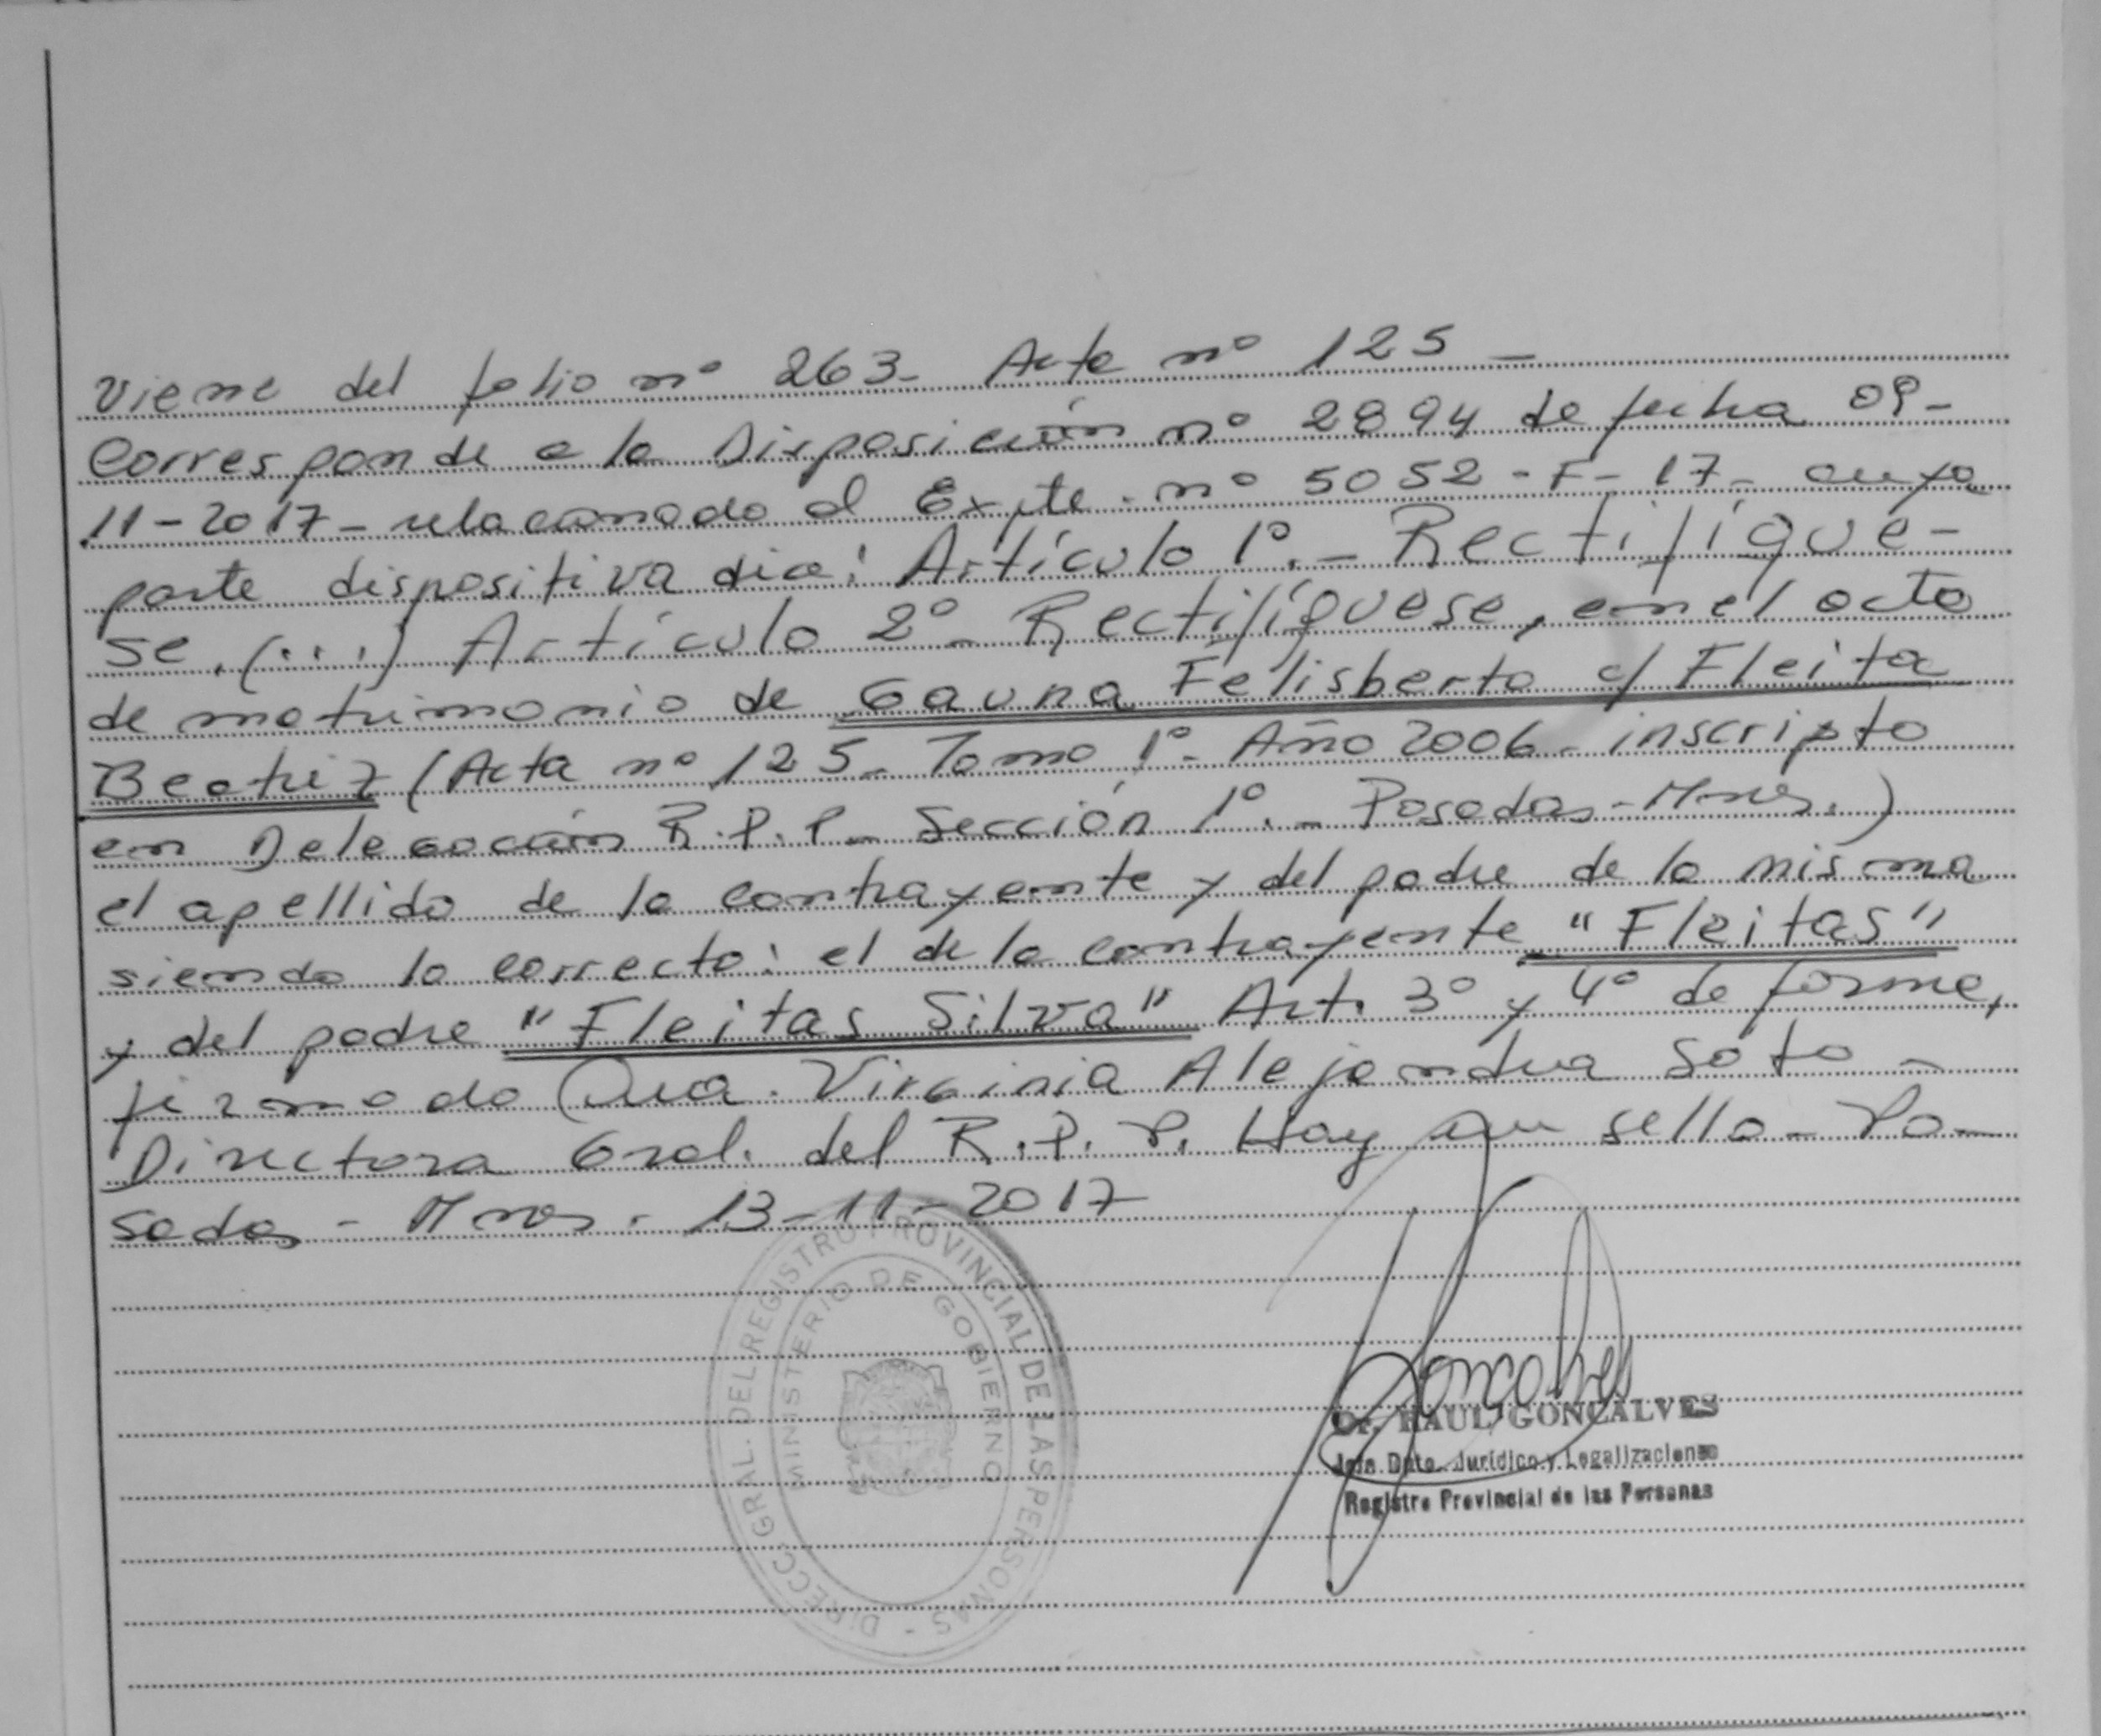 Viene del folio nº 263- Acta nº 125 -
Corresponde a la Disposición nº 2894 de fecha 09-
11-2017- relacionado al Expte. nº 5052-F-17- cuya
parte dispositiva dice: Artículo 1º.- Rectifíque-
se (...) Artículo 2º- Rectifíquese, en el acta
de matrimonio de Gauna Felisberto c/ Fleita
Beatriz (Acta nº 125- Tomo 1º- Año 2006- inscripto
en Delegación R.P.P- Sección 1º.- Posadas-Mnes.)
el apellido de la contrayente y del padre de la misma
siendo lo correcto: el de la contrayente "Fleitas"
y del padre "Fleitas Silva" Art. 3º y 4º de forma,
firmado Dra. Virginia Alejandra Soto -
Directora Gral. del R.P.P. Hay un sello- Po-
sadas - Mnes. 13-11-2017
DIRECC. GRAL. DEL REGISTRO PROVINCIAL DE LAS PERSONAS -
MINISTERIO DE GOBIERNO
Goncalves
Dr. RAUL GONCALVES
Jefe Dpto. Jurídico y Legalizaciones
Registro Provincial de las Personas